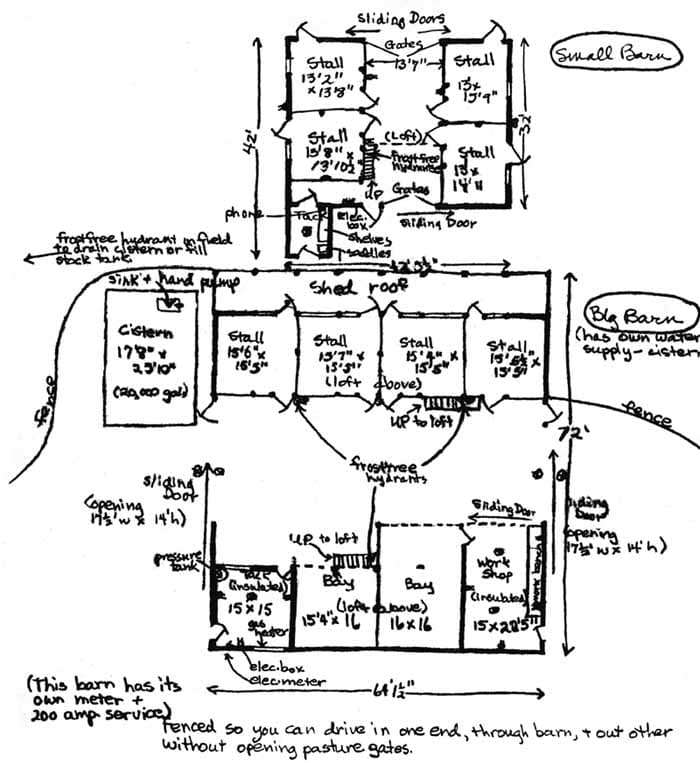 Sliding Doors
Small Barn
Gates
13'7"
Stall
13'2"
x 13'8"
Stall
13'x
13'9"
42'
32'
Stall
13'8" x
13'10½
(Loft)
frost free
hydrant
UP
Stall
13' x
14'11"
phone
Tack
elec.
box
shelves
saddles
Gates
sliding Door
frostfree hydrant in field
to drain cistern or fill
stock tank.
sink + hand pump
Shed roof
Big Barn
(has own water
supply - cistern
Cistern
17'8" x
23'10"
(20,000 gal)
Stall
15'6" x
15'3"
Stall
15'7" x
15'3"
Stall
15'4" x
15'5"
Stall
(loft above)
UP to loft
fence
fence
72'
frostfree
hydrants
Sliding
Door
(opening
17½' w x 14'h)
Sliding Door
Sliding
Door
(opening
17½' w x 14'h)
UP to loft
pressure
tank
Tack
(insulated)
15 x 15
gas
heater
Bay
15'4" x 16
(loft above)
Bay
16 x 16
Work
Shop
(insulated)
15 x 28'5"
work bench
elec. box
elec. meter
64'1½"
(This barn has its
own meter +
200 amp service)
Fenced so you can drive in one end, through barn, + out other
without opening pasture gates.